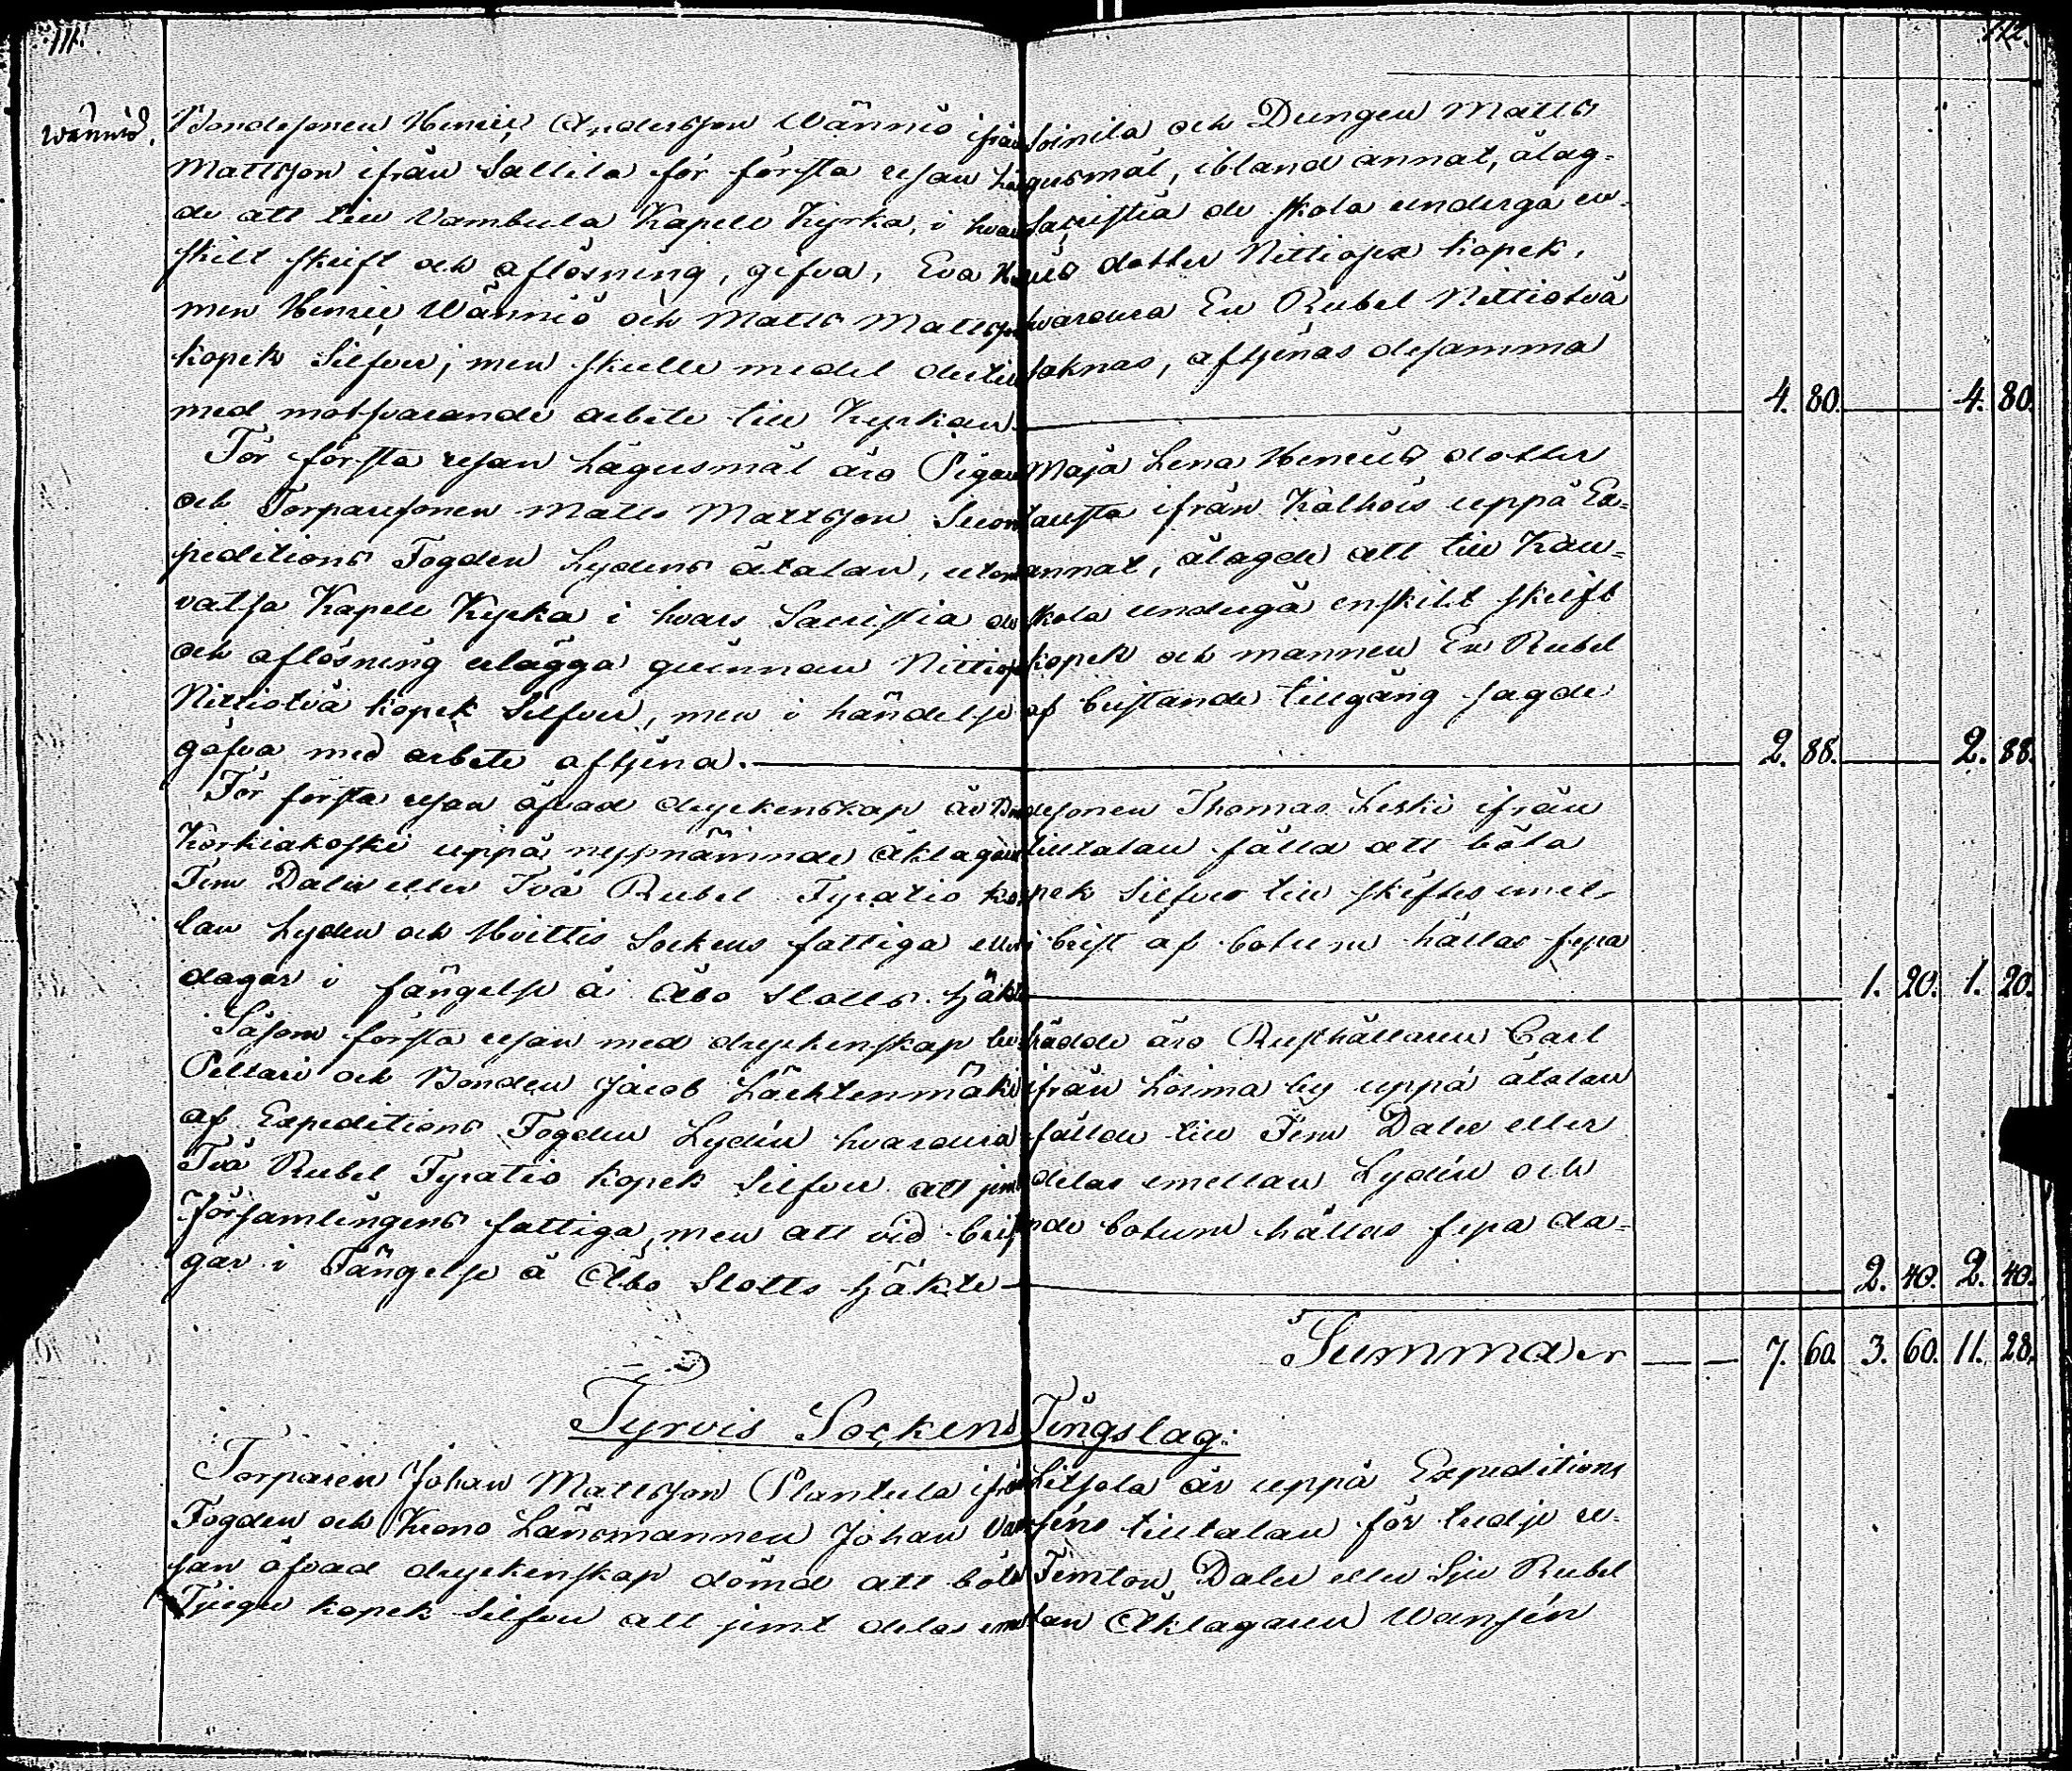 111.
112.
Wänniö.
Bondesonen Henric Andersson Wänniö ifrån Soinila och Drengen Matts
Mattsson ifrån Sallila för första resan lägersmål, ibland annat, ålag-
de att till Vambula Kapell Kyrka, i hvars Sacristia de skola undergå en-
skilt skrift och aflösning, gifva, Eva Henrics dotter Nittiosex kopek,
men Henric Wänniö och Matts Mattsson hvardera En Rubel Nittiotvå
kopek Silfver; men skulle medel dertill saknas, aftjenas desamma
med motsvarande arbete till Kyrkan. 4. 80. 4. 80.
För första resan lägersmål äro Pigan Maja Lena Henrics dotter
och Torparesonen Matts Mattsson Suontausta ifrån Kälhois uppå Ex-
peditions Fogden Lydens åtalan, utom annat, ålagde att till Kau-
vatsa Kapell Kyrka i hvars Sacristia de skola undergå enskilt skrift
och aflösning erlägga qvinnan Nittiosex kopek och mannen En Rubel
Nittiotvå kopek Silfver, men i händelse af bristande tillgång sagde
gåfva med arbete aftjena. 2. 88. 2. 88.
För första resan öfvad dryckenskap är Bondesonen Thomas Leski ifrån
Korkiakoski uppå nyssnämnde Åklagares tilltalan fälld att böta
Fem Daler eller Två Rubel Fyratio kopek Silfver till skiftes emel-
lan Lyden och Hvittis Sockens fattiga eller i brist af botum hållas sexa
dagar i fängelse å Åbo Slotts häkte 1. 20. 1. 20.
Såsom första resan med dryckenskap beträdde äro Rusthållaren Carl
Pellari och Bonden Jacob Lächtenmäki ifrån Loima by uppå åtalan
af Expeditions Fogden Lydén hvardera fällde till Fem Daler eller
Två Rubel Fyratio kopek Silfver att jemt delas emellan Lydén och
Församlingens fattiga, men att vid bristande botum hållas sexa da-
gar i Fängelse å Åbo Slotts häkte 2. 40. 2. 40.
Summa 7. 60. 3. 60. 11. 28.
Tyrvis Sockens Tingslag:
Torparen Johan Mattsson Plantula ifrån Litsola är uppå Expeditions
Fogden och Krono Länsmannen Johan Wanséns tilltalan för tredje re-
san öfvad dryckenskap dömd att böta Femton Daler eller Sju Rubel
Tjugu kopek Silfver att jemt delas emellan Åklagaren Wansén